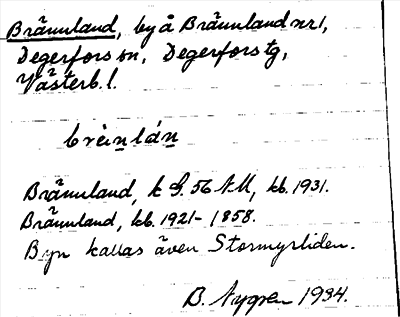 Brännland, by å Brännland nr 1,
Degerfors sn, Degerfors tg,
Västerb. l.
brèi̯n̲lán̲
Brännland, k G. 56 AM, kb. 1931.
Brännland, kb. 1921-1858.
Byn kallas även Stormyrliden.
B. Nygren 1934.